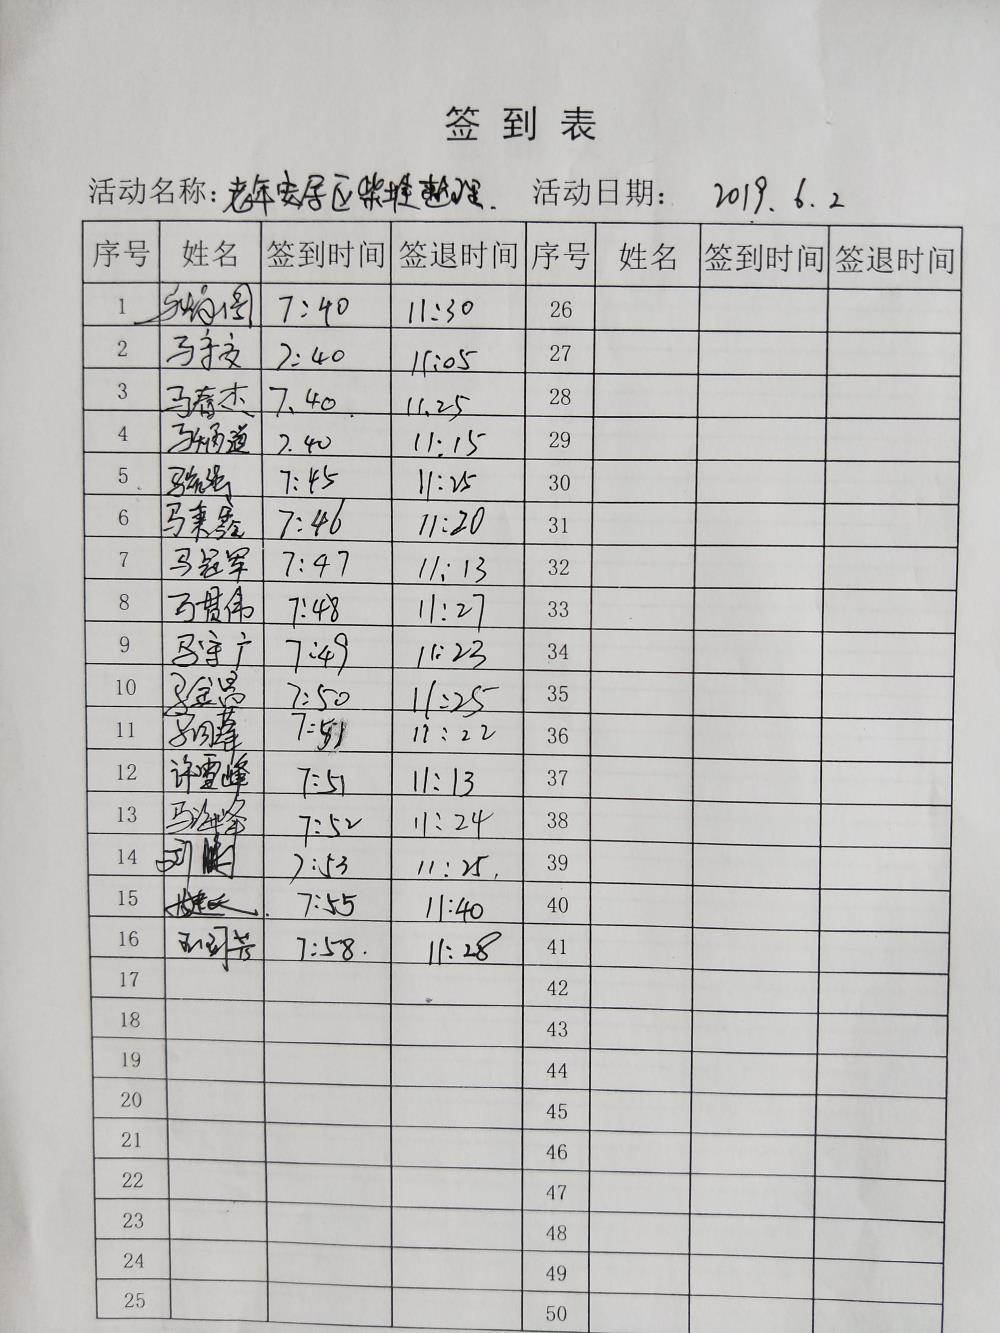 签到表
活动名称：老年安居区柴堆整理． 活动日期： 2019.6.2
序号 姓名 签到时间 签退时间 序号 姓名 签到时间 签退时间
1 7:40 11:30 26
2 马守文 7:40 11:05 27
3 马春杰 7.40 11.25 28
4 7.40 11:15 29
5 7:45 11:25 30
6 7:46 11:20 31
7 马冠军 7:47 11:13 32
8 马贯伟 7:48 11:27 33
9 马守广 7:49 11:23 34
10 马金昌 7:50 11:25 35
11 7:51 11:22 36
12 许雪峰 7:51 11:13 37
13 马海峰 7:52 11:24 38
14 7:53 11:25. 39
15 7:55 11:40 40
16 7:58. 11:28 41
17 42
18 43
19 44
20 45
21 46
22 47
23 48
24 49
25 50